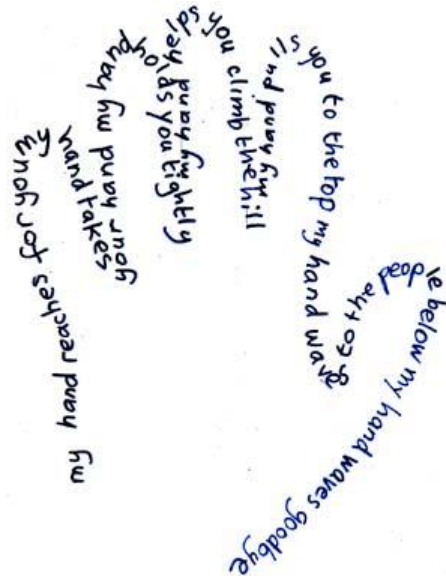 my hand reaches for you my
hand takes
your hand my hand
holds you tightly
my hand helps
you climb the hill
my hand pulls
you to the top my hand waves
to the people
below my hand waves goodbye